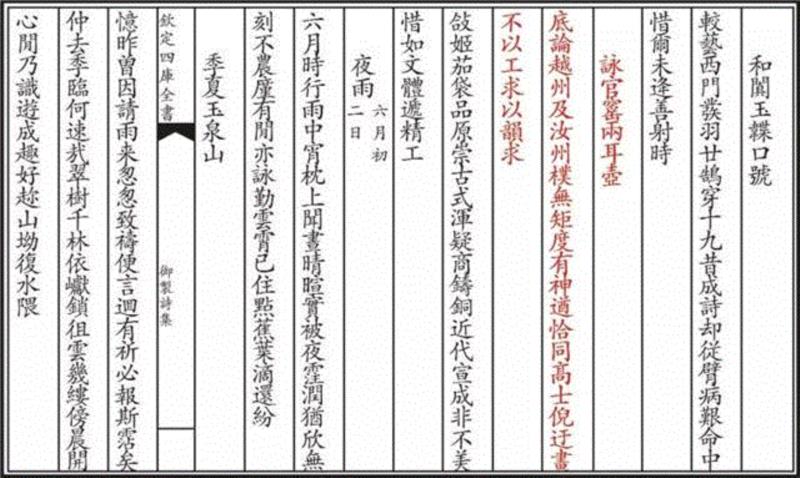 和闐玉韘口號
較藝西門發羽廿鵠穿十九昔成詩却從臂病艱命中
惜爾未逢善射時
詠官窰兩耳壺
底論越州及汝州樸無矩度有神遒恰同高士倪迂畫
不以工求以韻求
敆姬茄袋品原崇古式渾疑商鑄銅近代宣成非不美
惜如文體遞精工
夜雨
六月初
二日
六月時行雨中宵枕上聞晝晴暄實被夜霔潤猶欣無
刻不農廑有聞亦詠勤雲霄已住點蕉葉滴還紛
季夏玉泉山
欽定四庫全書
御製詩集
憶昨曾因請雨来怱怱致禱便言迴有祈必報斯霑矣
仲去季臨何速哉翠樹千林依巘鎖徂雲幾縷傍晨開
心閒乃識遊成趣好趂山坳復水隈